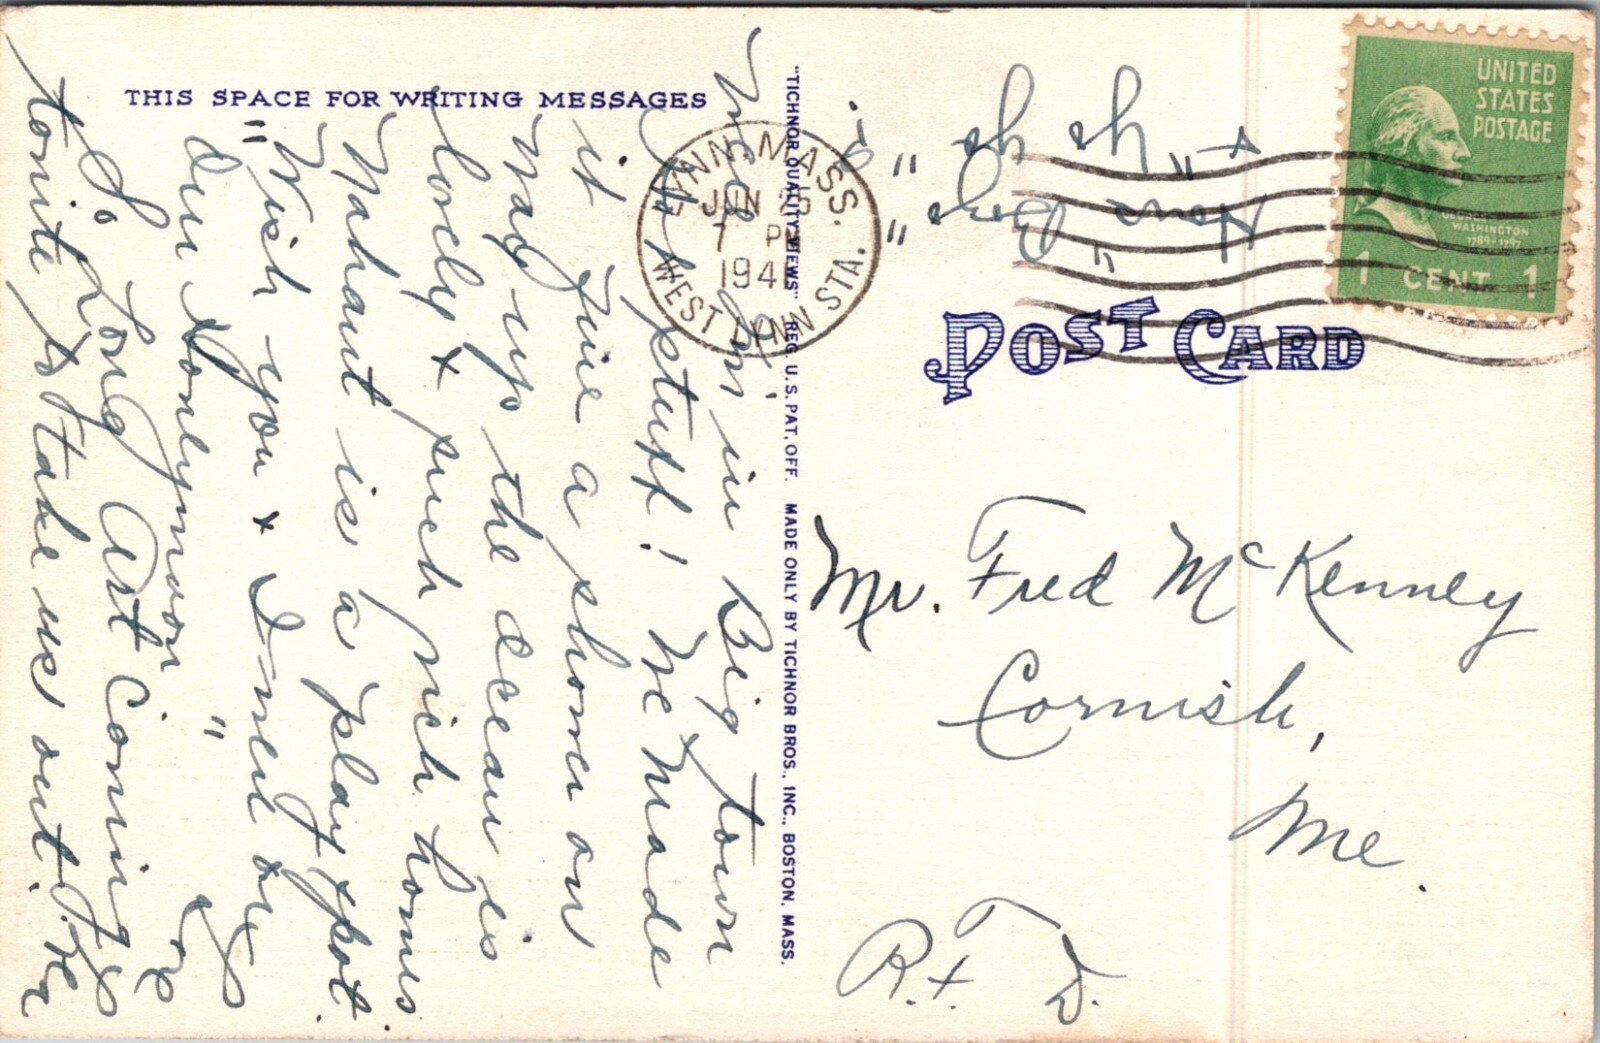 THIS SPACE FOR WRITING MESSAGES
in Big town
! We made
it fine a shower on
way up the ocean is
lovely + such rich homes.
Nahant is a play spot.
"Wish you + I
our Honlymoon"
So Long Art Coming
tonite to take us out.
"TICHNOR QUALITY VIEWS" REG. U.S. PAT. OFF. MADE ONLY BY TICHNOR BROS., INC., BOSTON, MASS.
LYNN, MASS.
JUN 25
7 PM
194
WEST LYNN STA.
UNITED
STATES
POSTAGE
GEORGE
WASHINGTON
1789-1797
1 CENT 1
POST CARD
Mr. Fred McKenney
Cornish,
Me.
R.F.D.